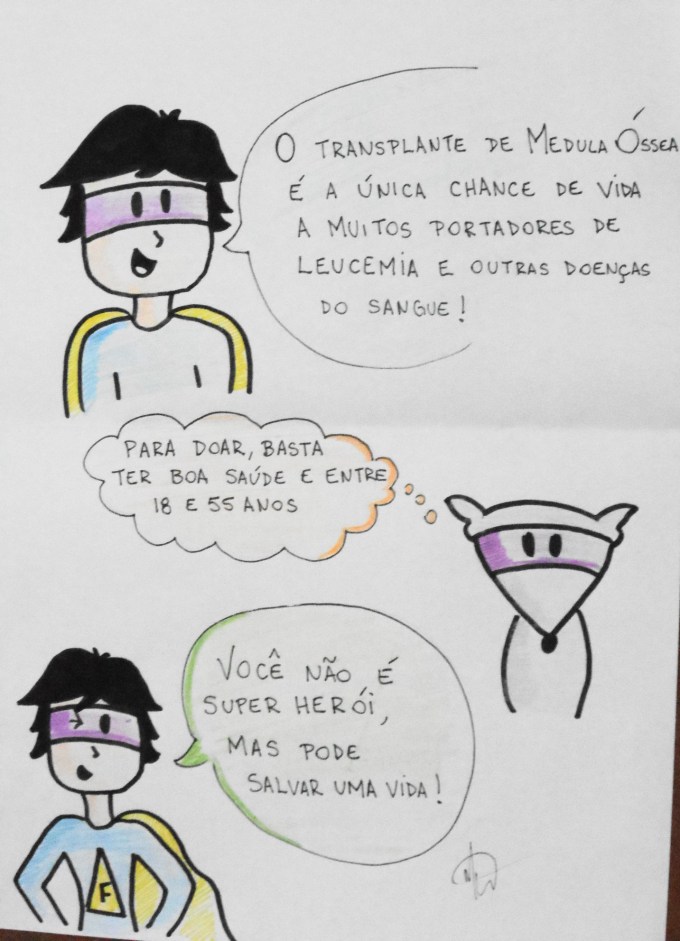 O TRANSPLANTE DE MEDULA ÓSSEA
É A ÚNICA CHANCE DE VIDA
A MUITOS PORTADORES DE
LEUCEMIA E OUTRAS DOENÇAS
DO SANGUE!
PARA DOAR, BASTA
TER BOA SAÚDE E ENTRE
18 E 55 ANOS
VOCÊ NÃO É
SUPER HERÓI,
MAS PODE
SALVAR UMA VIDA!
F